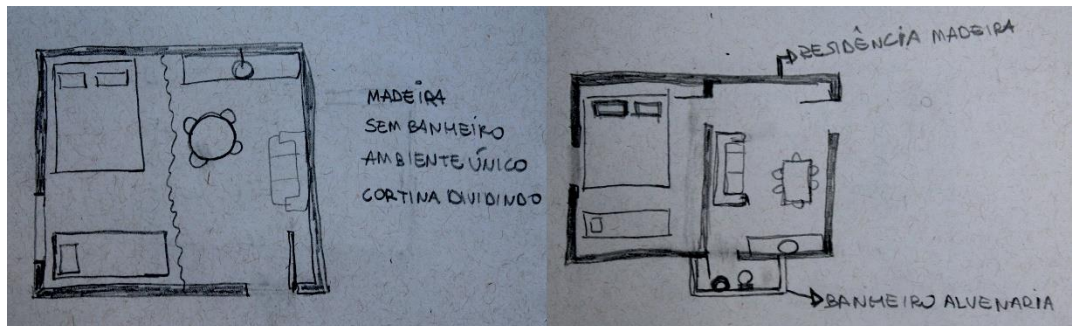 MADEIRA
SEM BANHEIRO
AMBIENTE ÚNICO
CORTINA DIVIDINDO
RESIDÊNCIA MADEIRA
BANHEIRO ALVENARIA